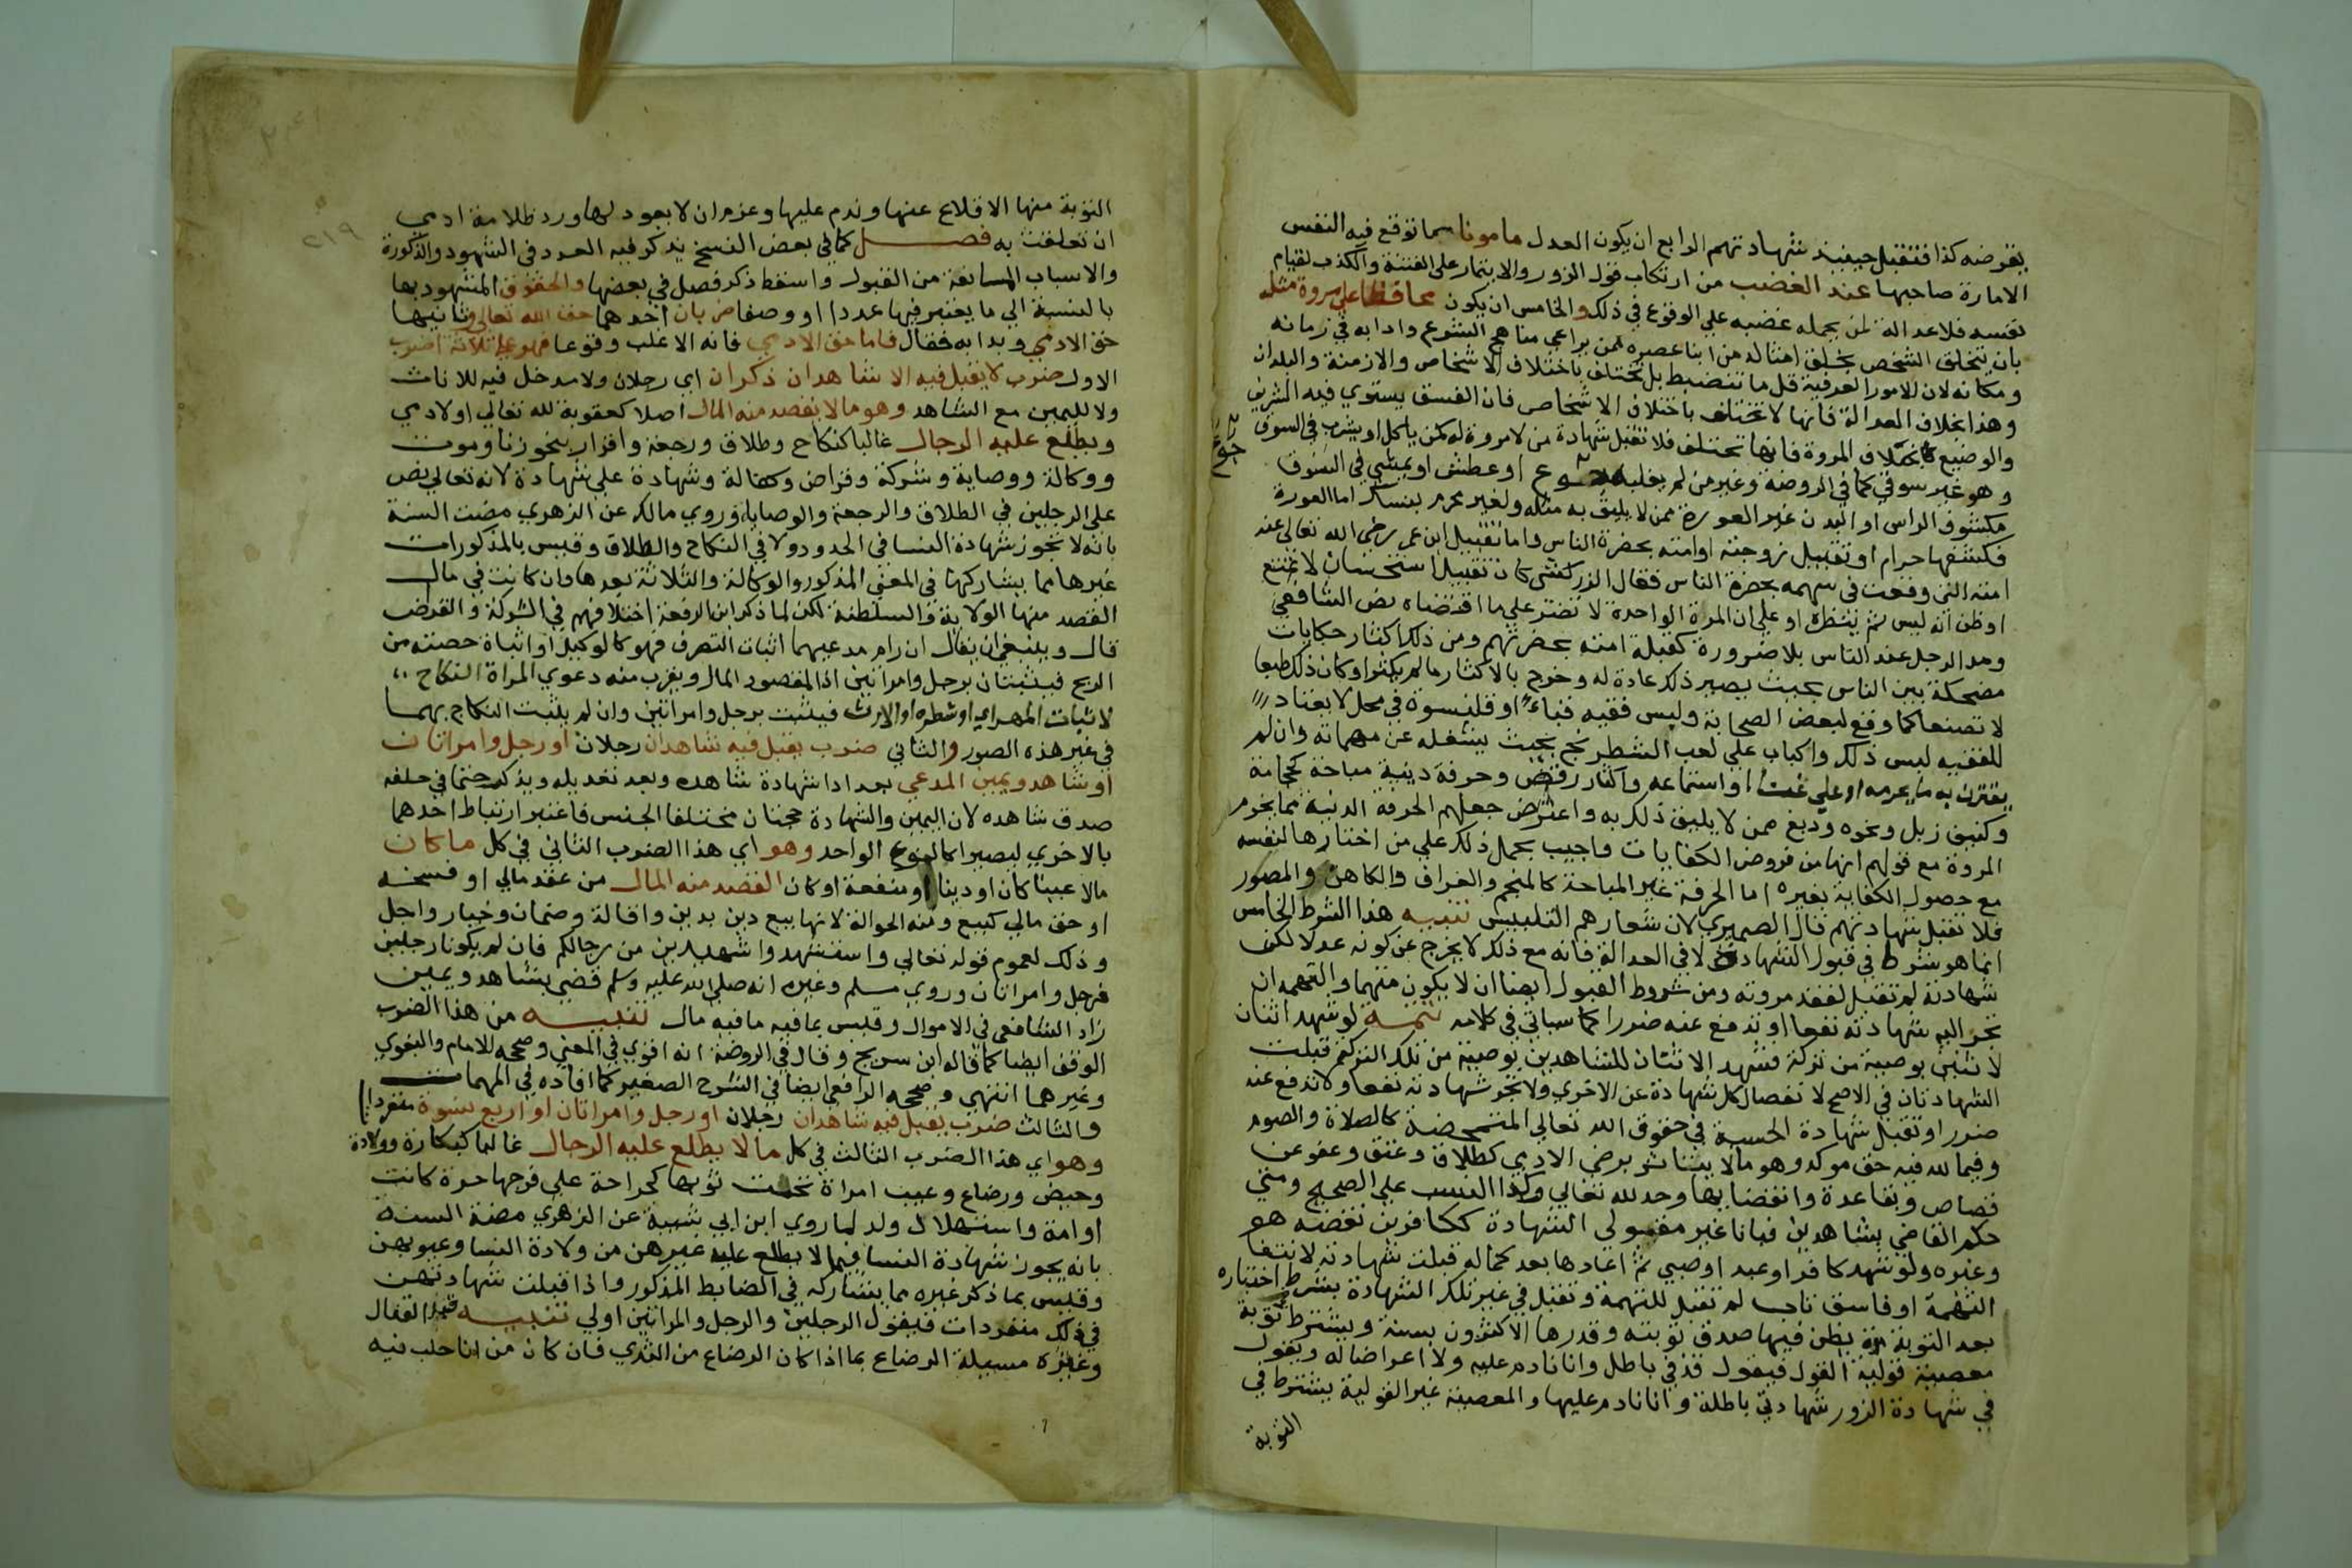 بفرضه كذا فتقبل حينيذ شهادتهم الرابع ان يكون العدل مامونا مما توقع فيه النفس
الامارة صاحبها عند الغضب من ارتكاب قول الزور والاصرار على الغيبة والكذب لقيام
نفسه فلا عدالة لمن يحمله غضبه علي الوقوع في ذلك والخامس ان يكون محافظا علي مروة مثله
بان يتخلق الشخص بخلق امثاله من ابنا عصره ممن يراعي مناهج الشرع وادابه في زمانه
ومكانه لان الامور العرفية قل ما تنضبط بل تختلف باختلاف الاشخاص والازمنة والبلدان
وهذا بخلاف العدالة فانها لا تختلف باختلاف الاشخاص فان الفسق يستوي فيه الشريف
والوضيع بخلاف المروة فانها تختلف فلا تقبل شهادة من لا مروة له كمن ياكل او يشرب في السوق
وهو غير سوقي كما في الروضة وغير من لم يغلبه جوع او عطش او يمشي في السوق
جوع
مكشوف الراس او البدن غير العورة ممن لا يليق به مثله ولغير محرم بنسك اما العورة
فكشفها حرام او تقبيل زوجته او امته بحضرة الناس واما تقبيل ابن عمر رضي الله تعالى عنه
امته التي وقعت في سهمه بحضرة الناس فقال الزركشي كان تقبيل استحسان لا تمتع
او ظن انه ليس ثم ينظره او علي ان المرة الواحدة لا تضر علي ما اقتضاه نص الشافعي
ومد الرجل عند الناس بلا ضرورة كقبلة امته بحضرتهم ومن ذلك اكثار حكايات
مضحكة بين الناس بحيث يصير ذلك عادة له وخرج بالاكثار ما لم يكثر او كان ذلك طبعا
لا تصنعا كما وقع لبعض الصحابة ولبس فقيه قباء او قلنسوة في محل لا يعتاد
للفقيه لبس ذلك واكباب علي لعب الشطرنج بحيث يشغله عن مهماته وان لم
يقترن به ما يحرمه او علي غنا او استماعه واكثار رقص وحرفة دنية مباحة كحجامة
وكنس زبل ونحوه ودبغ ممن لا يليق ذلك به واعترض جعلهم الحرفة الدنية مما يخرم
المروة مع قولهم انها من فروض الكفايات واجيب بحمل ذلك علي من اختارها لنفسه
مع حصول الكفاية بغيره اما الحرفة غير المباحة كالمنجم والعراف والكاهن والمصور
فلا تقبل شهادتهم قال الصيمري لان شعارهم التلبيس تنبيه هذا الشرط الخامس
انما هو شرط في قبول الشهادة لا في العدالة فانه مع ذلك لا يخرج عن كونه عدلا لكن
شهادته لم تقبل لفقد مروته ومن شروط القبول ايضا ان لا يكون متهما والتهمة ان
تجر اليه شهادته نفعا او تدفع عنه ضررا كما سياتي في كلامه تتمة لو شهد اثنان
لاثنين بوصية من تركة فشهد الاثنان للشاهدين بوصية من تلك التركة قبلت
الشهادتان في الاصح لانفصال كل شهادة عن الاخري ولا تجر شهادته نفعا ولا تدفع عنه
ضررا وتقبل شهادة الحسبة في حقوق الله تعالي المتمحضة كالصلاة والصوم
وفيما لله فيه حق موكد وهو ما لا يتاثر برضي الادمي كطلاق وعتق وعفو عن
قصاص وبقا عدة وانقضايها وحد لله تعالي وكذا النسب علي الصحيح ومتي
حكم القاضي بشاهدين فبانا غير مقبولي الشهادة ككافرين نقضه هو
وغيره ولو شهد كافر او عبد او صبي ثم اعادها بعد كماله قبلت شهادته لانتفا
التهمة او فاسق تاب لم تقبل للتهمة وتقبل في غير تلك الشهادة بشرط اختباره
بعد التوبة مدة يظن فيها صدق توبته وقدرها الاكثرون بسنة ويشترط في توبة
معصية قولية القول فيقول قذفي باطل وانا نادم عليه ولا اعود اليه ويقول
في شهادة الزور شهادتي باطلة وانا نادم عليها والمعصية غير القولية يشترط في
التوبة
٢١٩
التوبة منها الاقلاع عنها وندم عليها وعزم ان لا يعود لها ورد ظلامة ادمي
ان تعلقت به فصل كما في بعض النسخ يذكر فيه العدد في الشهود والذكورة
والاسباب المانعة من القبول واسقط ذكر فصل في بعضها والحقوق المشهود بها
بالنسبة الي ما يعتبر فيها عددا او وصفا ضربان احدهما حق الله تعالى وثانيها
حق الادمي وبدا به فقال فاما حق الادمي فانه الاغلب وقوعا فهو علي ثلاثة اضرب
الاول ضرب لا يقبل فيه الا شاهدان ذكران اي رجلان ولا مدخل فيه للاناث
ولا لليمين مع الشاهد وهو ما لا يقصد منه المال اصلا كعقوبة لله تعالي او لادمي
ويطلع عليه الرجال غالبا كنكاح وطلاق ورجعة واقرار بنحو زنا وموت
ووكالة ووصاية وشركة وقراض وكفالة وشهادة علي شهادة لانه تعالي نص
علي الرجلين في الطلاق والرجعة والوصاية وروي مالك عن الزهري مضت السنة
بانه لا تجوز شهادة النسا في الحدود ولا في النكاح والطلاق وقيس بالمذكورات
غيرها مما يشاركها في المعني المذكور والوكالة والثلاثة بعدها وان كانت في مال
القصد منها الولاية والسلطنة لكن لما ذكر ابن الرفعة اختلافهم في الشركة والقراض
قال وينبغي ان يقال ان رام مدعيهما اثبات التصرف فهو كالوكيل او اثباة حصته من
الربح فيثبتان برجل وامراتين اذ المقصود المال ويقرب منه دعوي المراة النكاح
لاثبات المهر اي او شطره او الارث فيثبت برجل وامراتين وان لم يثبت النكاح بهما
في غير هذه الصور والثاني ضرب يقبل فيه شاهدان رجلان او رجل وامراتان
او شاهد ويمين المدعي بعد ادا شهادة شاهده وبعد تعديله ويذكر حتما في حلفه
صدق شاهده لان اليمين والشهادة حجتان مختلفا الجنس فاعتبر ارتباط احدهما
بالاخري ليصيرا كالنوع الواحد وهو اي هذا الضرب الثاني في كل ما كان
مالا عينا كان او دينا او منفعة او كان القصد منه المال من عقد مالي او فسخه
او حق مالي كبيع ومنه الحوالة لانها بيع دين بدين واقالة وضمان وخيار واجل
وذلك لعموم قوله تعالي واستشهدوا شهيدين من رجالكم فان لم يكونا رجلين
فرجل وامراتان وروي مسلم وغيره انه صلي الله عليه وسلم قضي بشاهد ويمين
زاد الشافعي في الاموال وقيس بما فيه ما فيه مال تنبيه من هذا الضرب
الوقف ايضا كما قاله ابن سريج وقال في الروضة انه اقوي في المعني وصححه الامام والبغوي
وغيرهما انتهي وصححه الرافعي ايضا في الشرح الصغير كما افاده في المهمات
والثالث ضرب يقبل فيه شاهدان رجلان او رجل وامراتان او اربع نسوة منفردات
وهو اي هذا الضرب الثالث في كل ما لا يطلع عليه الرجال غالبا كبكارة وولادة
وحيض ورضاع وعيب امراة تحت ثوبها كجراحة علي فرجها حرة كانت
او امة واستهلال ولد لما روي ابن ابي شيبة عن الزهري مضة السنة
بانه يجوز شهادة النسا فيما لا يطلع عليه غيرهن من ولادة النسا وعيوبهن
وقيس بما ذكر غيره مما يشاركه في الضابط المذكور واذا قبلت شهادتهن
في ذلك منفردات فقبول الرجلين والرجل والمراتين اولي تنبيه قيد القفال
وغيره مسيلة الرضاع بما اذا كان الرضاع من الثدي فان كان من انا حلب فيه